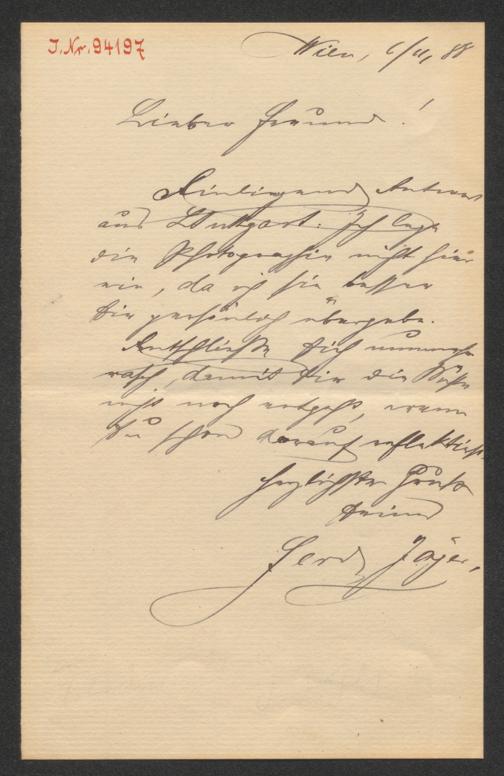 J.Nr. 94197
Wien, 6/11, 88
Lieber Freund!
Einliegend Antwort
aus Stuttgart. Ich lege
die Photographie nicht hier
ein, da ich sie besser
Dir persönlich übergebe.
Entschließe Dich nunmehr
rasch, damit Dir die
nicht noch entgeht, wenn
Du schon darauf reflektirst.
Herzlichste Grüße
Deines
Ferd Jäger,